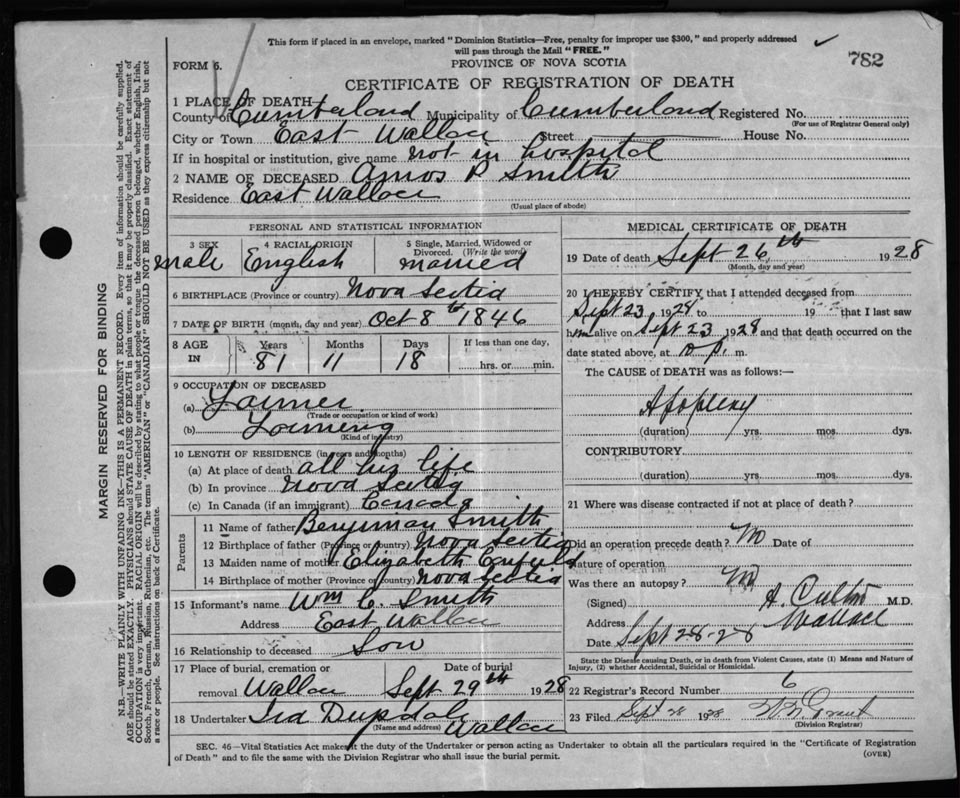 This form if placed in an envelope, marked "Dominion Statistics—Free, penalty for improper use $300," and properly addressed
will pass through the Mail "FREE."
782
FORM 6.
PROVINCE OF NOVA SCOTIA
CERTIFICATE OF REGISTRATION OF DEATH
1 PLACE OF DEATH—
County of Cumberland Municipality of Cumberland Registered No.
(For use of Registrar General only)
City or Town East Wallace Street House No.
If in hospital or institution, give name not in hospital
2 NAME OF DECEASED Amos P Smith
Residence East Wallace
(Usual place of abode)
PERSONAL AND STATISTICAL INFORMATION
3 SEX 4 RACIAL ORIGIN 5 Single, Married, Widowed or
Divorced. (Write the word)
male English married
6 BIRTHPLACE (Province or country) Nova Scotia
7 DATE OF BIRTH (month, day and year) Oct 8th 1846
8 AGE IN Years Months Days If less than one day,
81 11 18 hrs. or min.
9 OCCUPATION OF DECEASED
(a) Farmer
(Trade or occupation or kind of work)
(b) Farming
(Kind of industry)
10 LENGTH OF RESIDENCE (in years and months)
(a) At place of death all his life
(b) In province Nova Scotia
(c) In Canada (if an immigrant) Canada
Parents
11 Name of father Benjman Smith
12 Birthplace of father (Province or country) Nova Scotia
13 Maiden name of mother Elizabeth
14 Birthplace of mother (Province of country) Nova Scotia
15 Informant's name Wm C. Smith
Address East Wallace
16 Relationship to deceased Son
17 Place of burial, cremation or Date of burial
removal Wallace Sept 29th 1928
18 Undertaker Ira Wallace
(Name and address)
MEDICAL CERTIFICATE OF DEATH
19 Date of death Sept 26th 1928
(Month, day and year)
20 I HEREBY CERTIFY that I attended deceased from
Sept 23 1928 to 19 that I last saw
him alive on Sept 23 1928 and that death occurred on the
date stated above, at 10 p. m.
The CAUSE of DEATH was as follows:—
Apoplexy
(duration) yrs. mos. dys.
CONTRIBUTORY
(duration) yrs. mos. dys.
21 Where was disease contracted if not at place of death?
Did an operation precede death? No Date of
Nature of operation
Was there an autopsy? No
(Signed) A. M.D.
Address Wallace
Date Sept 28-28
State the Disease causing Death, or in death from Violent Causes, state (1) Means and Nature of
Injury, (2) whether Accidental, Suicidal or Homicidal.
22 Registrar's Record Number 6
23 Filed Sept 28 1928 Grant
(Division Registrar)
SEC. 46—Vital Statistics Act makes it the duty of the Undertaker or person acting as Undertaker to obtain all the particulars required in the "Certificate of Registration
of Death" and to file the same with the Division Registrar who shall issue the burial permit.
(OVER)
MARGIN RESERVED FOR BINDING
N.B.—WRITE PLAINLY WITH UNFADING INK—THIS IS A PERMANENT RECORD. Every item of information should be carefully supplied.
AGE should be stated EXACTLY. PHYSICIANS should STATE CAUSE OF DEATH in plain terms, so that it may be properly classified. Exact statement of
OCCUPATION is very important. RACIAL ORIGIN will be described by stating to what people or tongue the deceased person belonged, whether English, Irish,
Scotch, French, German, Russian, Ruthenian, etc. The terms "AMERICAN" or "CANADIAN" SHOULD NOT BE USED as they express citizenship but not
a race or people. See instructions on back of Certificate.